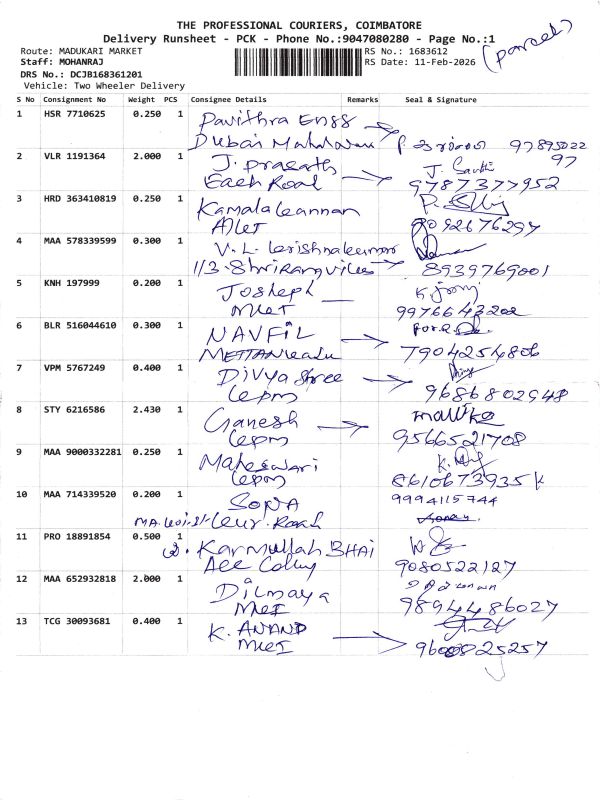 THE PROFESSIONAL COURIERS, COIMBATORE
Delivery Runsheet - PCK - Phone No.:9047080280 - Page No.:1
(parcel)
Route: MADUKARI MARKET
RS No.: 1683612
Staff: MOHANRAJ
RS Date: 11-Feb-2026
DRS No.: DCJB168361201
Vehicle: Two Wheeler Delivery
S No Consignment No Weight PCS Consignee Details Remarks Seal & Signature
1 HSR 7710625 0.250 1 Pavithra Engg
97895022
97
2 VLR 1191364 2.000 1 J. Prasath J.
Road 9787377952
3 HRD 363410819 0.250 1 Kamalakannan
9092676297
4 MAA 578339599 0.300 1 V.L. Krishnakumar
1/3 8939769001
5 KNH 197999 0.200 1 Josheph
9976643202
6 BLR 516044610 0.300 1 NAVFIL
7904254806
7 VPM 5767249 0.400 1 Divya Shree
9686802948
8 STY 6216586 2.430 1 Ganesh Mallika
9566521708
9 MAA 9000332281 0.250 1 Maheswari
8610673935
10 MAA 714339520 0.200 1 SONA 9994115744
Road
11 PRO 18891854 0.500 1 Karmullah BHAI
9080522127
12 MAA 652932818 2.000 1 Dilmaya
9894486027
13 TCG 30093681 0.400 1 K. ANAND